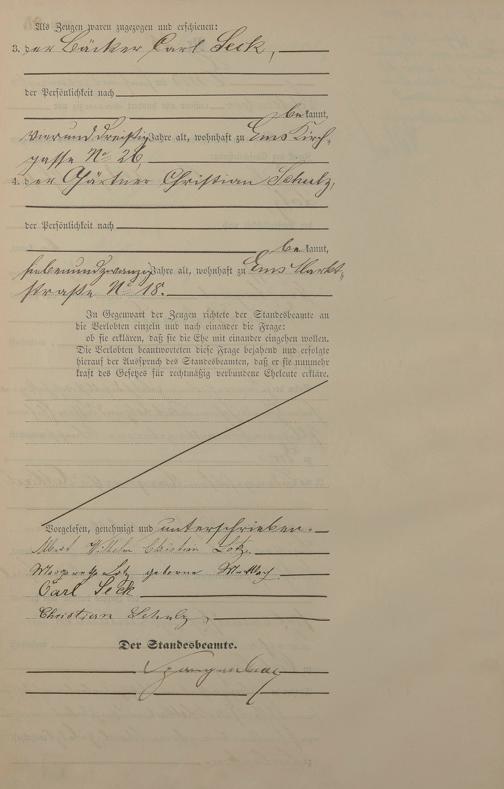 Als Zeugen waren zugezogen und erschienen:
3. der Bäcker Carl Seck,
der Persönlichkeit nach
bekannt,
vierunddreißig Jahre alt, wohnhaft zu Ems Kirch-
gasse No 26
4. der Gärtner Christian Schulz,
der Persönlichkeit nach
bekannt,
siebenundzwanzig Jahre alt, wohnhaft zu Ems Markt-
straße No 18.
In Gegenwart der Zeugen richtete der Standesbeamte an
die Verlobten einzeln und nach einander die Frage:
ob sie erklären, daß sie die Ehe mit einander eingehen wollen.
Die Verlobten beantworteten diese Frage bejahend und erfolgte
hierauf der Ausspruch des Standesbeamten, daß er sie nunmehr
kraft des Gesetzes für rechtmäßig verbundene Eheleute erkläre.
Vorgelesen, genehmigt und unterschrieben.
Wilhelm Christian Lotz.
Lotz geborne
Carl Seck
Christian Schulz,
Der Standesbeamte.